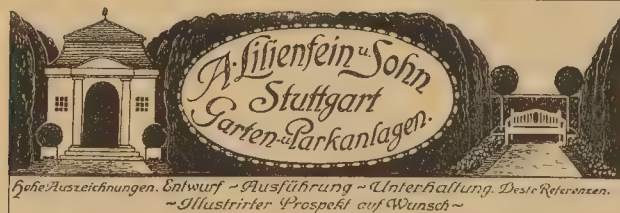 A. Lilienfein u. Sohn
Stuttgart
Garten- u. Parkanlagen.
Hohe Auszeichnungen. Entwurf ~ Ausführung ~ Unterhaltung. Beste Referenzen.
~ Illustrirter Prospekt auf Wunsch ~